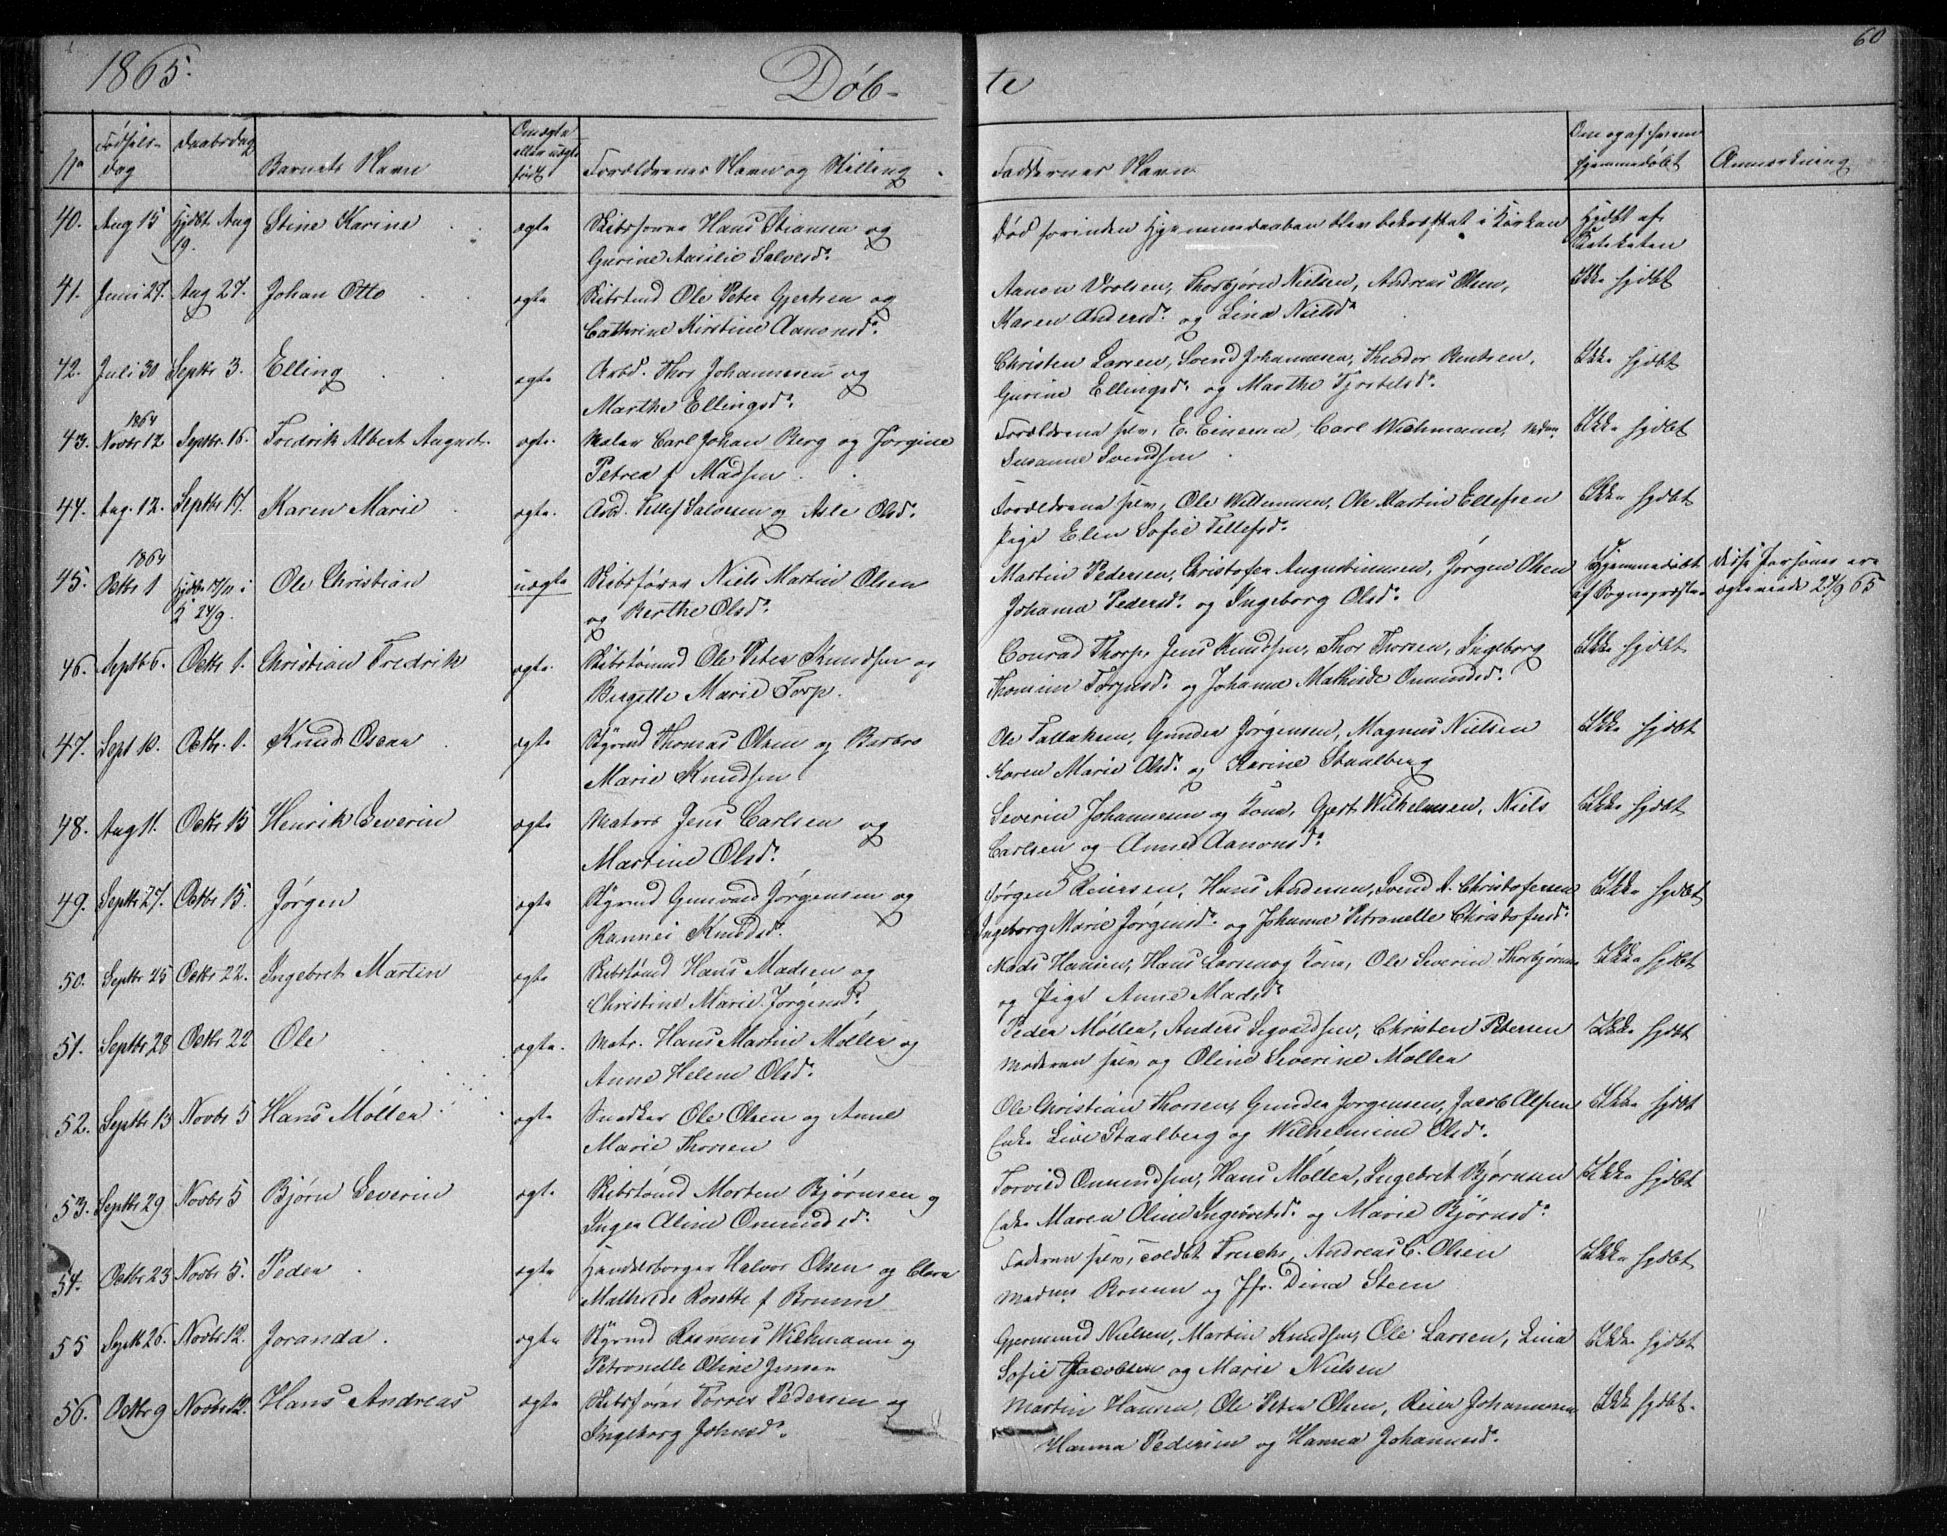 60
1865. Døb- te
No Fødsels-dag Daabsdag Barnets Navn Om ægte eller uægte født Forældrenes Navn og Stilling. Faddernes Navn Om og af hvem hjemmedøbt Anmærkning
40. Aug 15 Hjdbt Aug Stine Karine ægte Skibsfører Hans Stiansen og Død forinden Hjemmedaaben blev bekræftet i Kirken Hjdbt af
19. Gurine Aasilie Salvesd. Kateketen
41. Juni 27. Aug 27. Johan Otto ægte Skibstmd Ole Peter Gjertsen og Aanon Thorbjørn Nielsen, Andreas Olsen, Ikke hjdbt
Cathrine Kirstine Aanonsd. Karen Andersd. og Lina Nielsd.
42. Juli 30 Septbr 3. Elling ægte Arbd. Thor Johannesen og Christen Larsen, Svend Johannesen, Theodor Bentsen, Ikke hjdbt
Marthe Ellingsd. Gurine Ellingsd. og Marthe
1864
43. Novbr 12 Septbr. 16. Fredrik Albert August. ægte. Maler Carl Johan Berg og Jørgine Forældrene selv, E. Einersen, Carl Wichmann, Mdm. Ikke hjdbt
Petrea f Madsen. Susanne Svendsen
44. Aug. 12. Septbr 17. Karen Marie ægte. Arbd. Tellef Salvesen og Asle Olsd. Forældrene selv, Ole Willumsen, Ole Martin Ellefsen Ikke hjdbt
Pige Elen Sofie Tellefsd.
1864
45. Octbr 1 Hjdbt 12/11 i Ole Christian uægte Skibsfører Niels Martin Olsen Martin Pedersen, Christofer Augustinusen, Jørgen Olsen Hjemmedøbt Disse Personer ere
K 24/9. og Berthe Olsd. Johanne Pedersd. og Ingeborg Olsd. af Sognepræsten ægteviede 24/9 65
46. Septb 6. Octbr 1. Christian Fredrik ægte. Skibstømmd Ole Peter Knudsen og Conrad Thorp, Jens Knudsen, Thor Thorsen, Ingeborg Ikke hjdbt
Birgitte Marie Torp. Thomine Torjusd. og Johanne Mathilde Omundsd.
47. Sept 10. Octbr. 1. Knud Oscar ægte Styrmd Thomas Olsen og Barbro Ole Tallaksen, Gunder Jørgensen, Magnus Nielsen Ikke hjdbt
Marie Knudsen Karen Marie Olsd. og Karine Staalberg
48. Aug 11. Octbr 15 Henrik Severin ægte Matros Jens Carlsen og Severin Johannesen og Kone, Gjert Wilhelmsen, Niels Ikke hjdbt
Martine Olsd. Carlsen og Anne Aanonsd.
49. Septbr 27. Octbr 15. Jørgen ægte Styrmd Gunvald Jørgensen og Jørgen Reiersen, Hans Andersen, Svend A. Christofersen Ikke hjdbt
Rannei Knudsd. Ingeborg Marie Jørgensd. og Johanne Petronelle Christofersd.
50. Septbr 25 Octbr 22. Ingebret Martin ægte Skibstømd Hans Madsen og Mads Hansen, Hans Larsen og Kone, Ole Severin Thorbjørnsen Ikke hjdbt
Christine Marie Jørgensd. og Pige Anne Madsd.
51. Septbr 28 Octbr 22 Ole ægte. Matr. Hans Martin Møller og Peder Møller, Anders Segvaldsen, Christen Petersen Ikke hjdbt
Anne Helene Olsd. Moderen selv og Oline Severine Møller
52. Septbr 13 Novbr 5 Hans Møller ægte Snedker Ole Olsen og Anne Ole Christian Thorsen, Gunder Jørgensen, Jacob Olsen Ikke hjdbt
Marie Thorsen Enke Live Staalberg og Wilhelmine Olsd.
53. Septbr 29 Novbr 5 Bjørn Severin ægte Skibstømd Morten Bjørnsen og Torvild Omundsen, Hans Møller, Ingebret Bjørnsen Ikke hjdbt
Inger Oline Omundsd. Enke Maren Oline Ingebretsd. og Marie Bjørnsd.
54. Octbr 23 Novbr 5. Peder ægte Handelsborger Halvor Olsen og Clara Faderen selv, Toldbt Fuchs, Andreas C. Olsen Ikke hjdbt
Mathilde Rosette f Bruun Madme Bruun og Jfr. Dina Steen
55 Septb 26. Novbr 12. Joranda. ægte Styrmd Rasmus Wichmann og Gjermund Nielsen, Martin Knudsen, Ole Larsen, Lina Ikke hjdbt
Petronelle Oline Jensen Sofie Jacobsen og Marie Nielsen
56. Octbr 9 Novbr 12. Hans Andreas ægte Skibsfører Torris Pedersen og Martin Hansen, Ole Peter Olsen, Reier Johannesen Ikke hjdbt.
Ingeborg Johnsd. Hanna Pedersen og Hanna Johannesd.